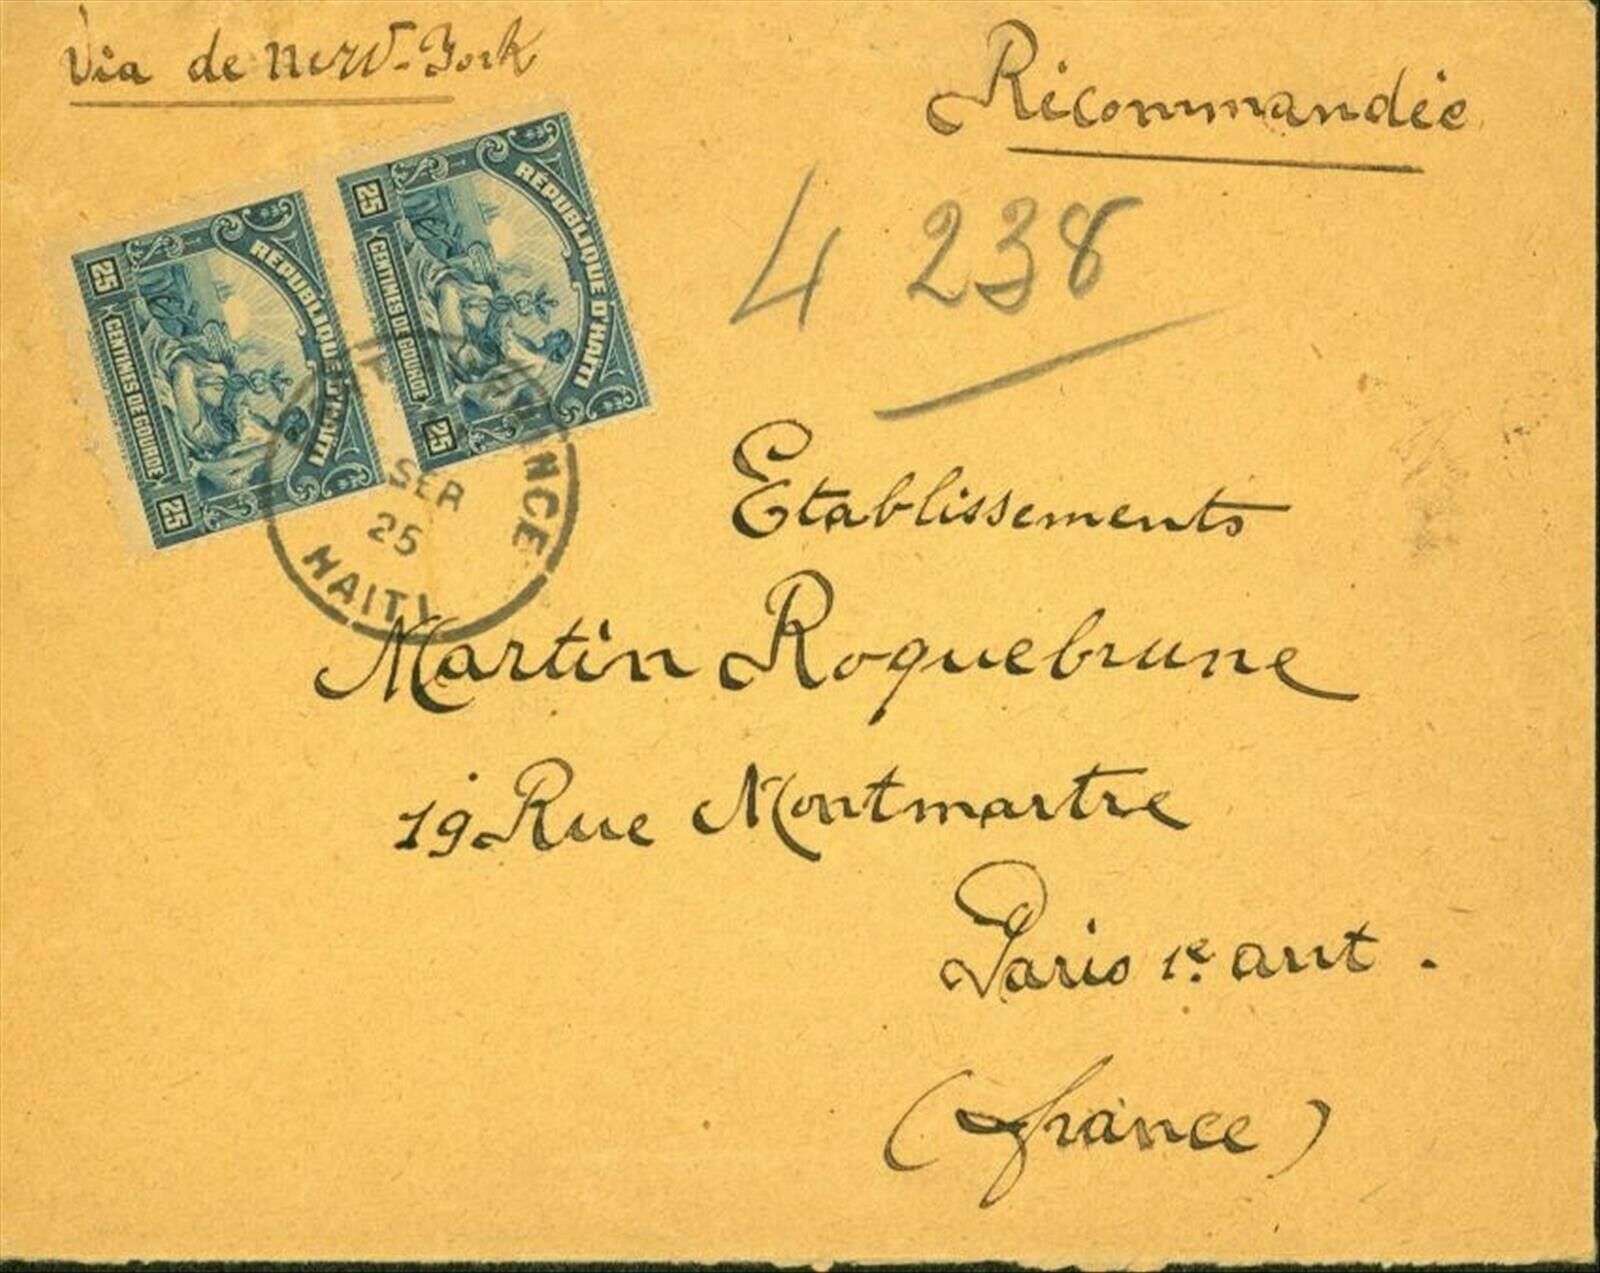 Via de New-York
Récommandée
4 238
RÉPUBLIQUE D'HAITI
25 CENTIMES DE GOURDE 25
RÉPUBLIQUE D'HAITI
25 CENTIMES DE GOURDE 25
SEP
25
HAITY
Etablissements
Martin Roquebrune
19 Rue Montmartre
Paris 1e arrt.
(France)